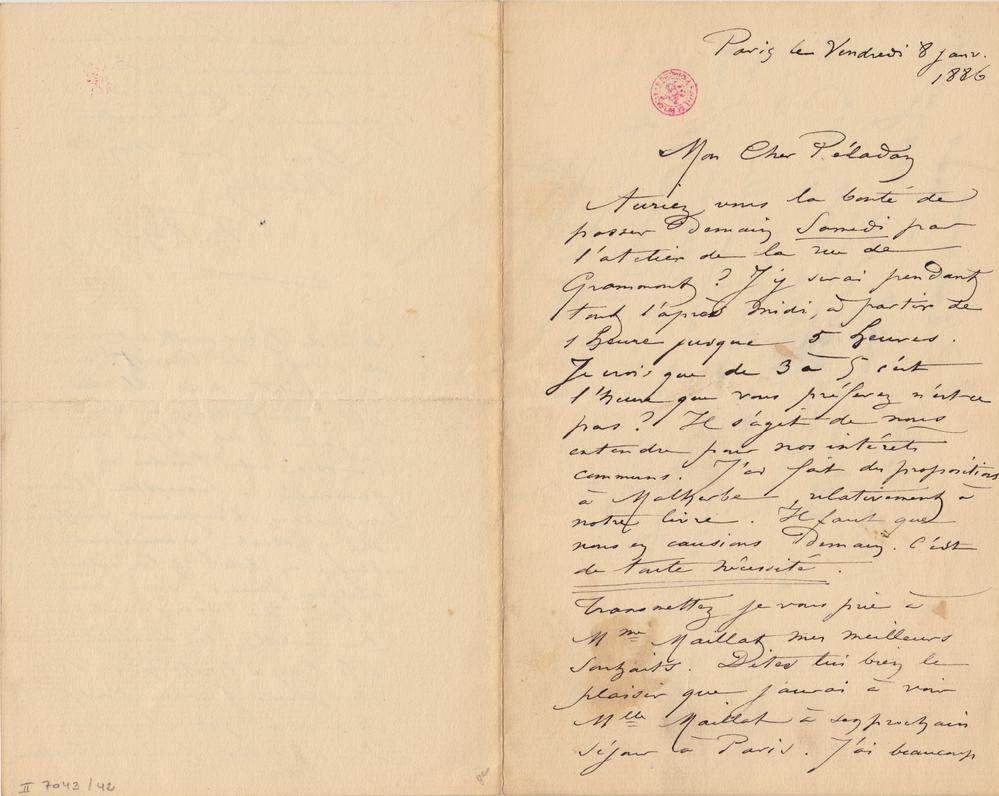 Paris le Vendredi 8 janv.
1886
Mon Cher Péladan
Auriez vous la bonté de
passer Demain Samedi par
l'atelier de la rue de
Grammont ? J'y serai pendant
tout l'après midi, à partir de
1 heure jusque 5 heures.
Je crois que de 3 à 5 c'est
l'heure que vous préferez n'est-ce
pas ? Il s'agit de nous
entendre pour nos intérêts
communs. J'ai fait des propositions
à Malherbe, relativement à
notre livre. Il faut que
nous en causions Demain. C'est
de toute nécessité.
Transmettez je vous prie à
Mme Maillat mes meilleurs
souhaits. Dites lui bien le
plaisir que j'aurai à voir
Mlle Maillat à son prochain
séjour à Paris. J'ai beaucoup
II 7043 / 42